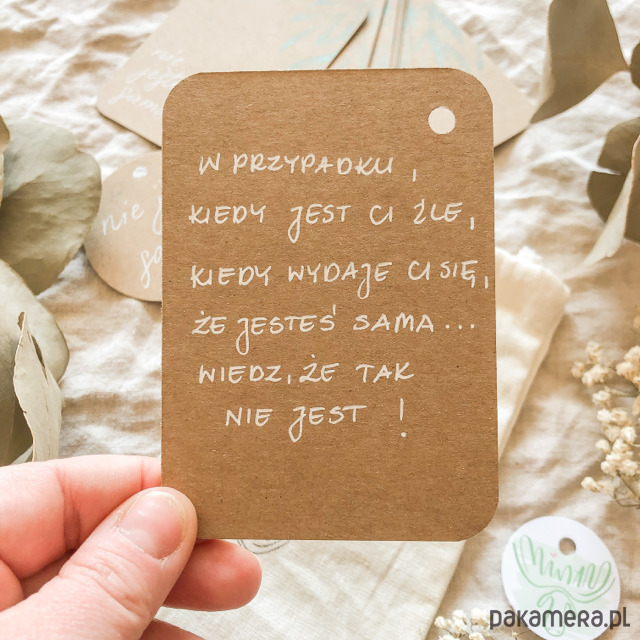 W PRZYPADKU,
KIEDY JEST CI ŹLE,
KIEDY WYDAJE CI SIĘ,
ŻE JESTEŚ SAMA...
WIEDZ, ŻE TAK
NIE JEST!
nie
pakamera.pl